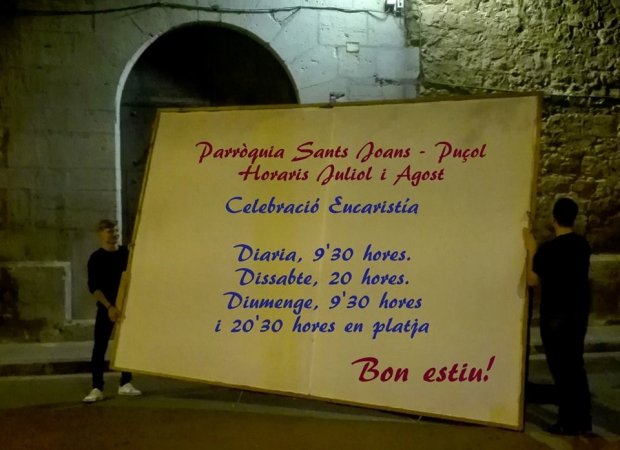 Parròquia Sants Joans - Puçol
Horaris Juliol i Agost
Celebració Eucaristía
Diaria, 9'30 hores.
Dissabte, 20 hores.
Diumenge, 9'30 hores
i 20'30 hores en platja
Bon estiu!